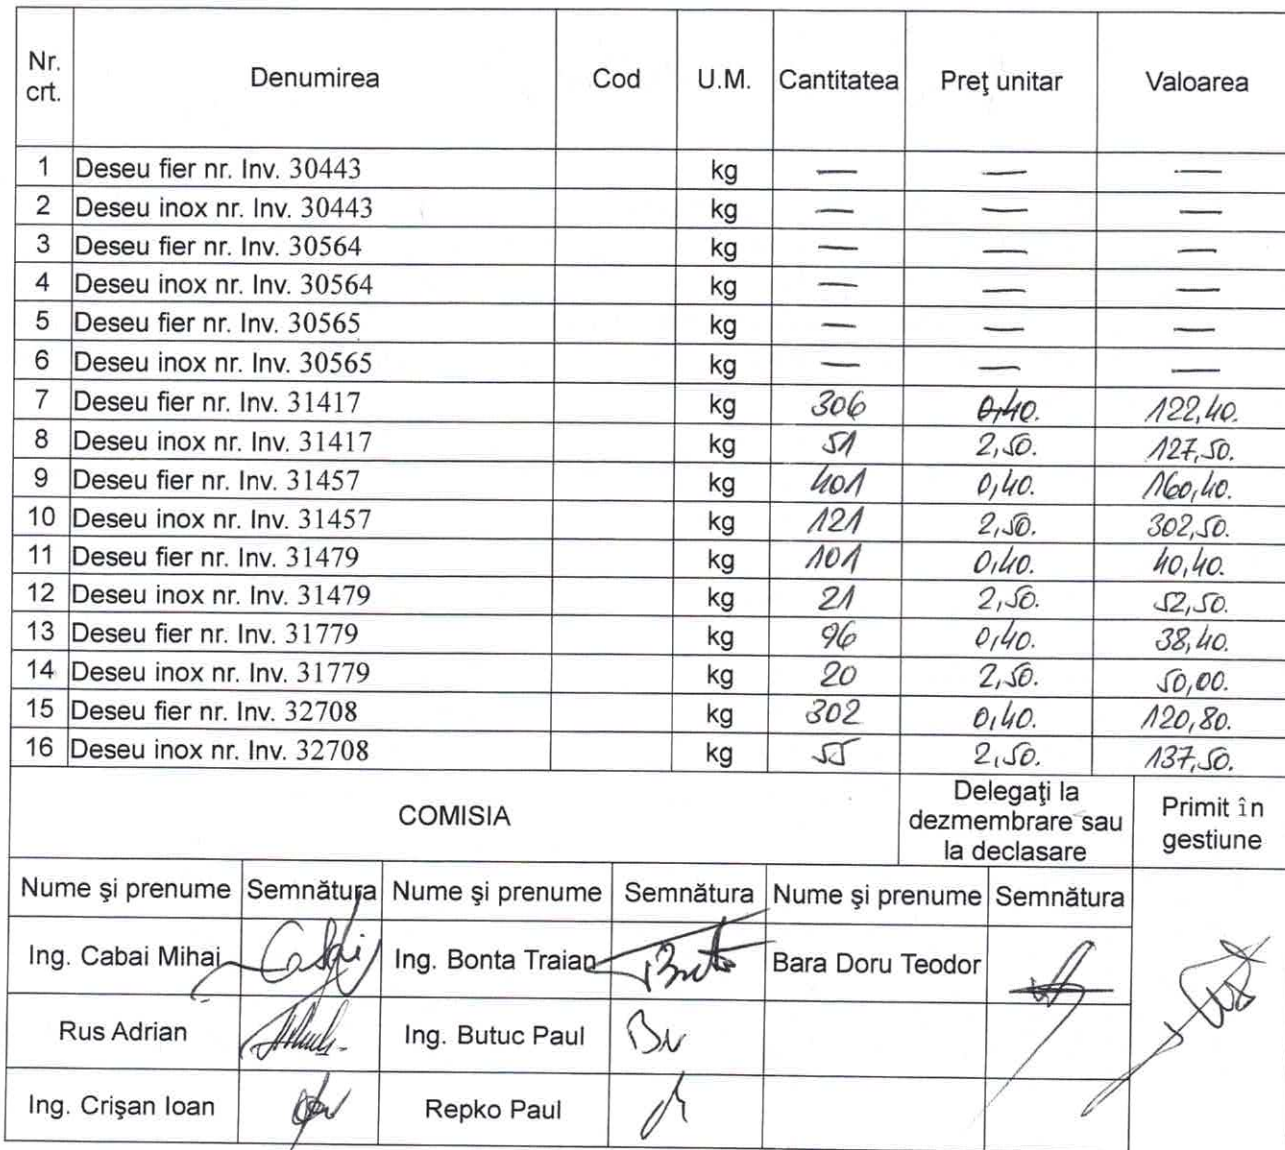 Nr. crt. Denumirea Cod U.M. Cantitatea Preţ unitar Valoarea
1 Deseu fier nr. Inv. 30443 kg — — —
2 Deseu inox nr. Inv. 30443 kg — — —
3 Deseu fier nr. Inv. 30564 kg — — —
4 Deseu inox nr. Inv. 30564 kg — — —
5 Deseu fier nr. Inv. 30565 kg — — —
6 Deseu inox nr. Inv. 30565 kg — — —
7 Deseu fier nr. Inv. 31417 kg 306 0,40. 122,40.
8 Deseu inox nr. Inv. 31417 kg 51 2,50. 127,50.
9 Deseu fier nr. Inv. 31457 kg 401 0,40. 160,40.
10 Deseu inox nr. Inv. 31457 kg 121 2,50. 302,50.
11 Deseu fier nr. Inv. 31479 kg 101 0,40. 40,40.
12 Deseu inox nr. Inv. 31479 kg 21 2,50. 52,50.
13 Deseu fier nr. Inv. 31779 kg 96 0,40. 38,40.
14 Deseu inox nr. Inv. 31779 kg 20 2,50. 50,00.
15 Deseu fier nr. Inv. 32708 kg 302 0,40. 120,80.
16 Deseu inox nr. Inv. 32708 kg 55 2,50. 137,50.
COMISIA
Delegaţi la
dezmembrare sau
la declasare
Primit în
gestiune
Nume şi prenume Semnătura Nume şi prenume Semnătura Nume şi prenume Semnătura
Ing. Cabai Mihai Cabai Ing. Bonta Traian Bara Doru Teodor
Rus Adrian Ing. Butuc Paul
Ing. Crişan Ioan Repko Paul